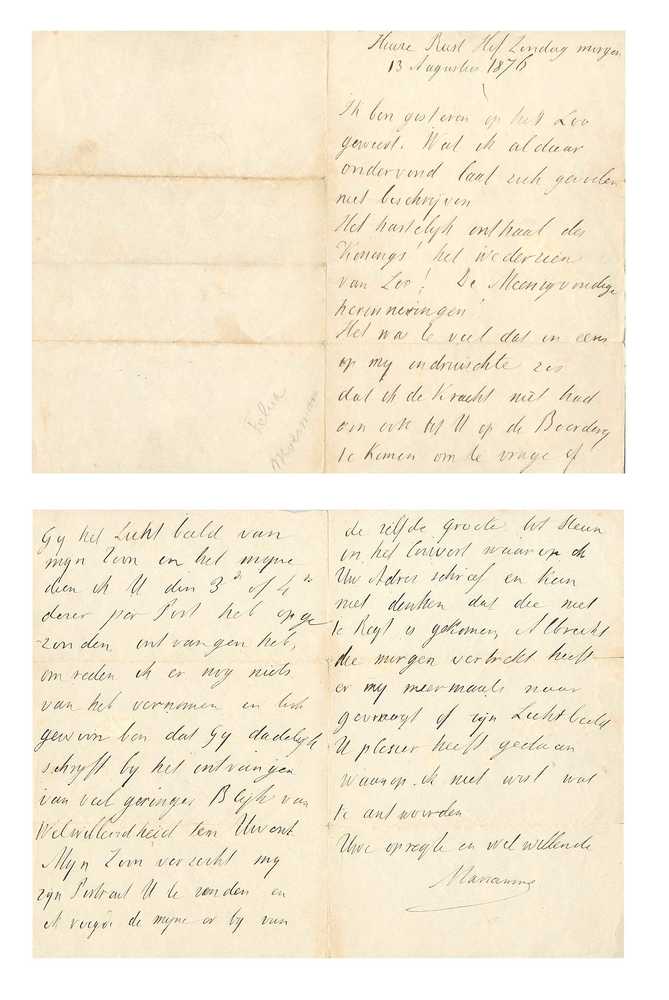 Huize Rust Hof Zondag morgen
13 Augustus 1876
Ik ben gisteren op het Loo
geweest. Wat ik aldaar
ondervond laat zich gevoelen
niet beschrijven
Het hartelyk onthaal des
Konings! het wederzien
van Loo! De Meenigvuldige
herinneringen!
Het was te veel dat in eens
op my indruischte zoo
dat ik de Kracht niet had
om ook tot U op de Boerdery
te Komen om de vrage of
Gy het Lichtbeeld van
myn Zoon en het myne
dien ik U den 3n of 4n
dezer per Post heb opge
zonden ontvangen heb,
om reden ik er nog niets
van heb vernomen en
gewoon ben dat Gy dadelyk
schryft by het ontvangen
van veel geringer Blyk van
Welwillendheid ten Uwent
Myn Zoon verzocht my
zyn Portrait U te zenden en
ik voegde de myne er by van
de zelfde groote tot steun
in het Couvert waar op ik
Uw Adres schreef en Kan
niet denken dat die niet
te Regt is gekomen, Albrecht
die morgen vertrekt heeft
er my meermaals naar
gevraagt of zyn Lichtbeeld
U plesier heeft gedaan
waarop ik niet wist wat
te antwoorden
Uwe opregte en welwillende
Marianne